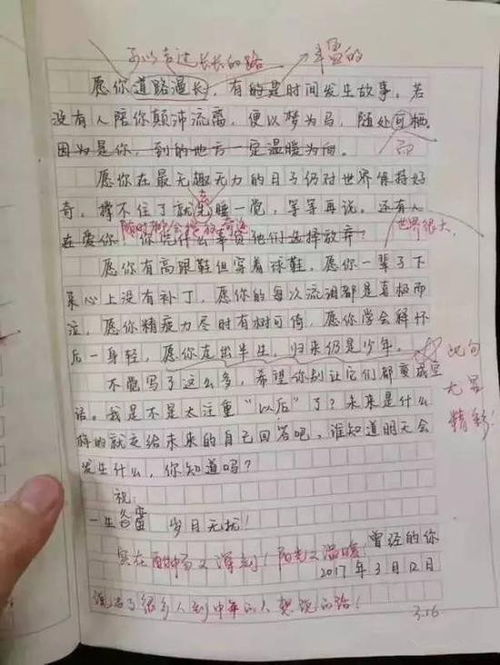 可以走过长长的路 丰富的
愿你道路漫长，有的是时间发生故事。若
没有人陪你颠沛流离，便以梦为马，随处可栖。
因为是你，到的地方一定温暖为向。
而
愿你在最无趣无力的日子仍对世界保持好
奇。撑不住了就先睡一觉，等等再说。还有人
在爱你 你凭什么辜负他们选择放弃？
世界很大
愿你有高跟鞋但穿着球鞋，愿你一辈子下
来心上没有补丁，愿你的每次流泪都是喜极而
泣，愿你精疲力尽时有树可倚，愿你学会释怀
后一身轻，愿你走出半生，归来仍是少年。
此句
尤显
精彩
不觉写了这么多，希望你别让它们都变成空
话。我是不是太注重“以后”了？未来是什么
样的就交给未来的自己回答吧，谁知道明天会
发生什么，你知道吗？
祝：
一生 岁月无扰！
曾经的你
实在酣畅又深刻！阳光又温暖
2017年3月12日
说出了很多人到中年的人想说的话！
3.16